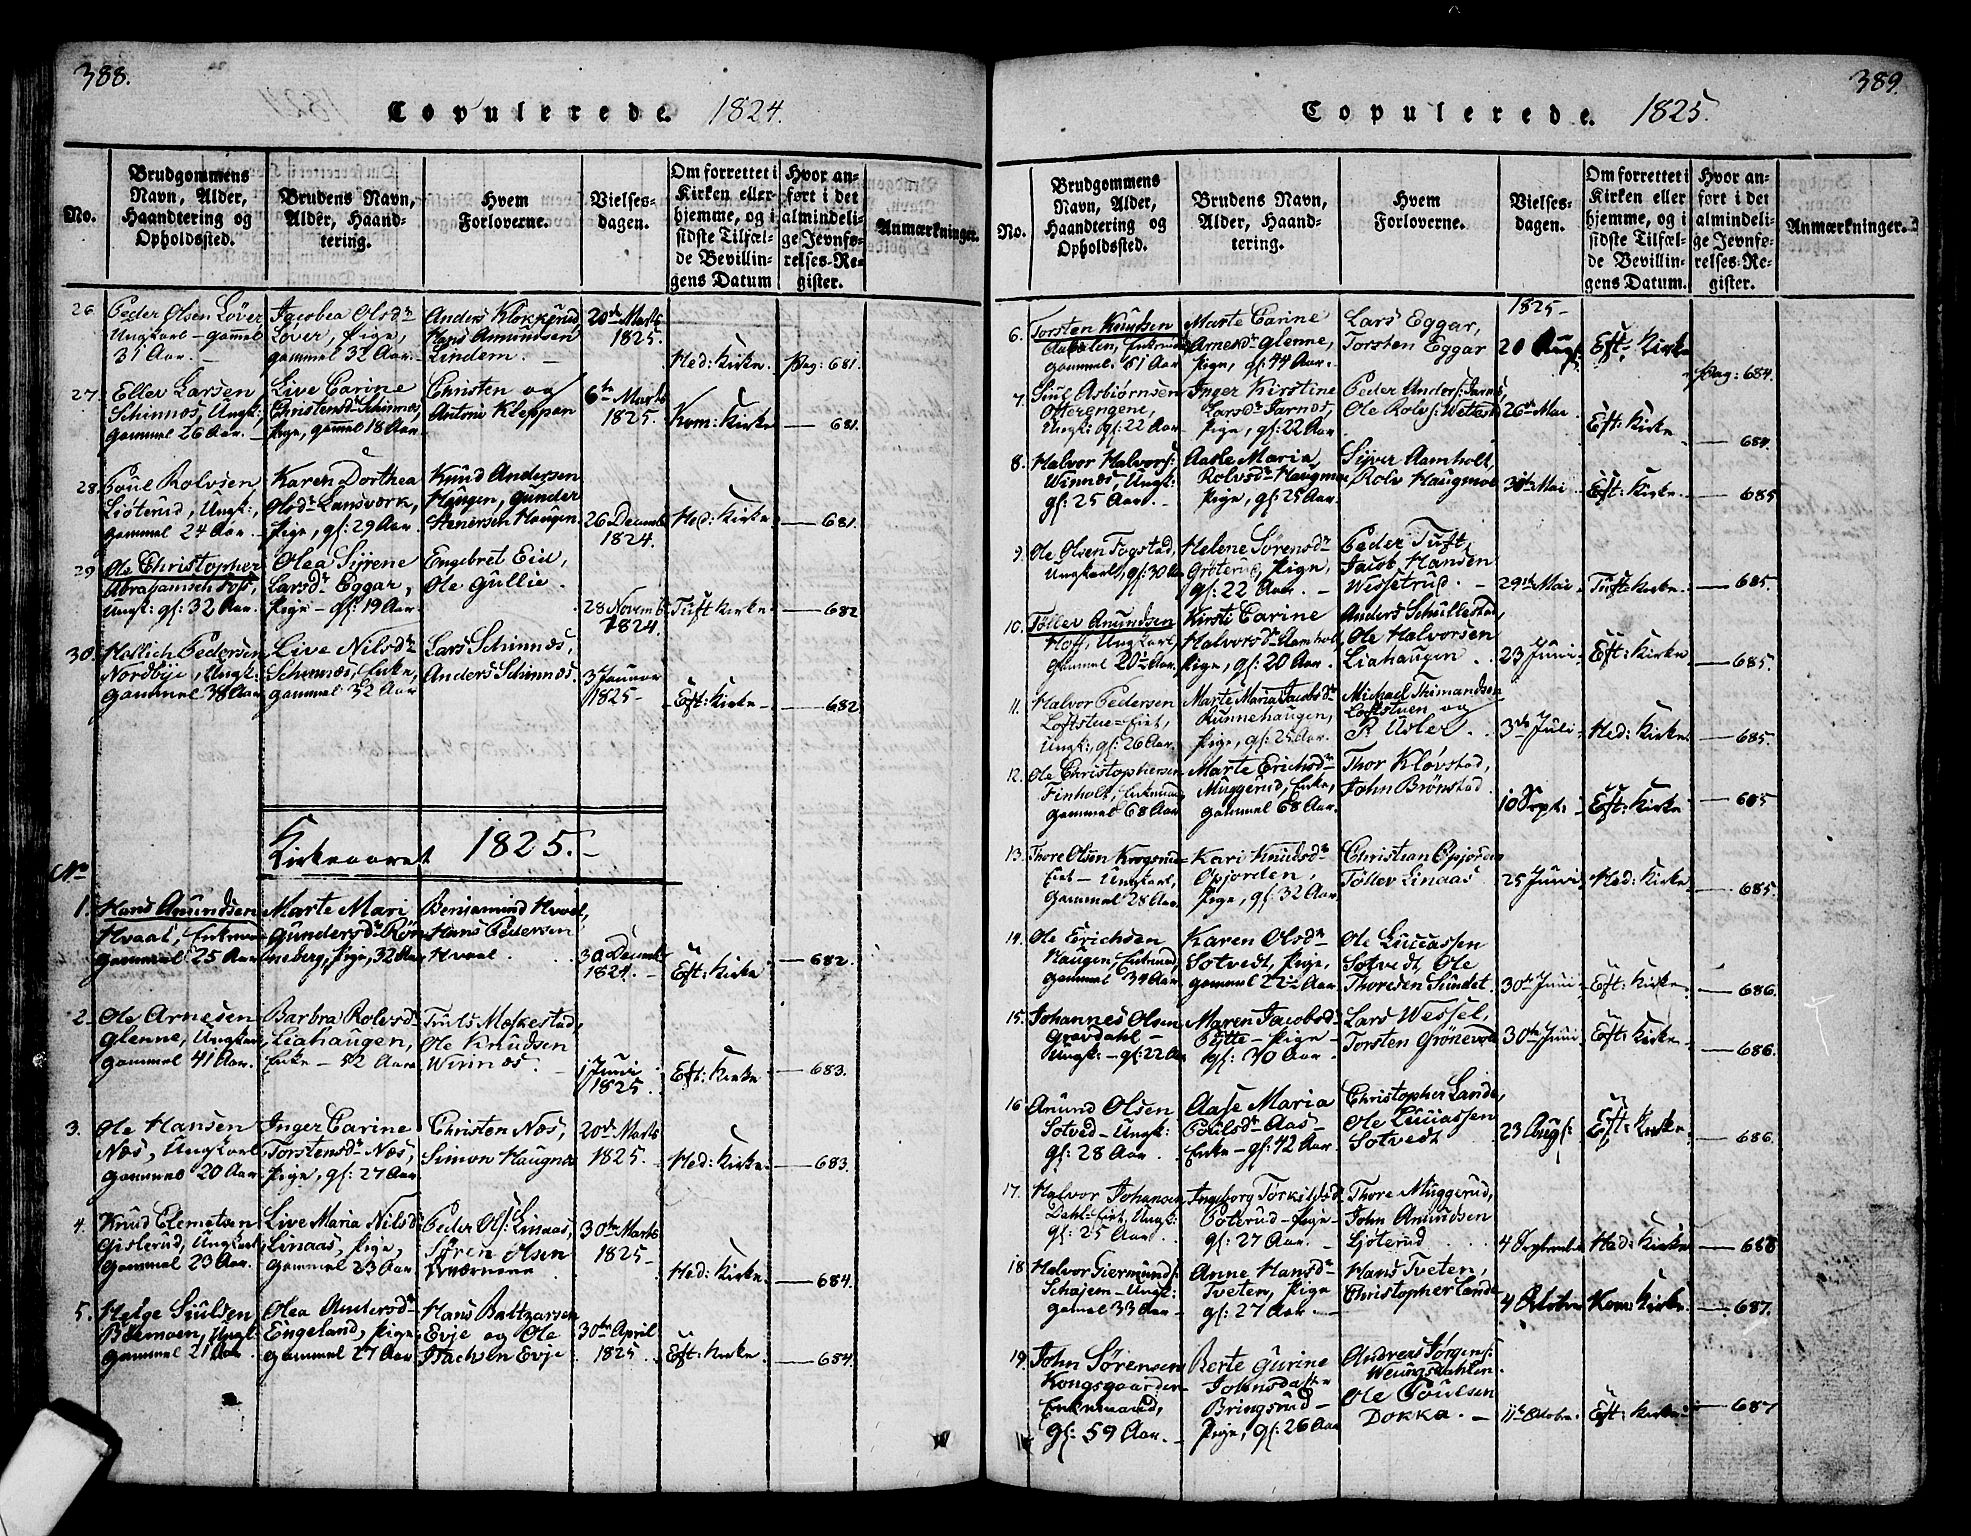 388.
Copulerede. 1824.
No.
Brudgommens Navn, Alder, Haandtering og Opholdssted.
Brudens Navn, Alder, Haandtering.
Hvem Forloverne.
Vielsesdagen.
Om forrettet i Kirken eller hjemme, og i sidste Tilfælde Bevillingens Datum
Hvor anført i det almindelige Jevnførelses-Register.
Anmærkninger.
26. Peder Olsen Løver Jacobea Olsdr Anders Klokkerud, 20de Marts
Ungkarl – gammel Løver, Pige, Hans Amundsen 1825.
31 Aar. – gammel 32 Aar. Lindem. – Hed: Kirke. Pag: 681.
27. Ellev Larsen Live Carine Christen og 6te Marts
Schinnes, Ungk: Christensdr Schinnes, Anton Kleppan 1825. Kom: Kirke — 681.
gammel 26 Aar. – Pige, gammel 18 Aar.
28. Poul Rolvsen Karen Dorthea Knud Andersen
Listerud, Ungk:, Olsdr Lansverk, Haugen, Gunder
gammel 24 Aar. Pige, gl: 29 Aar. Haugen. 26 Decemb: Hed: Kirke. — 681.
1824.
29. Ole Christopher Olea Sirene Engebret Eid,
Abrahamsen Foss, Larsdr Eggar, Ole Gullie.
Ungk: gl: 32 Aar. Pige – gl: 19 Aar. 28 Novemb: Tuft Kirke. — 682
1824.
30. Hollich Pedersen Live Nilsdr Lars Schinnes,
Nordbye, Ungk: Schinnes, Enke, Anders Schinnes. 3 Januar
gammel 38 Aar gammel 32 Aar 1825 – Eft: Kirke – — 682
Kirkeaaret 1825. –
No
1. Hans Amundsen Marte Mari Benjamind Hvaal,
Hvaal, Enkem: Gundersdr Røn- Hans Pedersen
gammel 25 Aar neberg, Pige, 32 Aar Hvaal. 30 Decemb: — 682.
1824. – Eft: Kirke
2. Ole Arnesen Barbra Rolvsdr Truls Moskestad,
Glenne, Ungkar: Liahaugen, Ole Knudsen
gammel 41 Aar. Enke – 52 Aar Winnes. – 1 Juni Eft: Kirke — 683.
1825.
3. Ole Hansen Inger Carine Christen Næs, 20de Marts
Næs, Ungkarl Torstensdr Næs, Simon Haugnes 1825. Hed: Kirke. — 683.
gammel 20 Aar Pige, gl: 27 Aar
4. Knud Clemetsen Live Maria Nilsdr Peder Ols: Linaas, 30te Marts
Gislerud, Ungkarl, Linaas, Pige, Søren Olsen 1825 –
gammel 23 Aar. gammel 23 Aar Hed: Kirke. — 684.
5. Helge Siulsen Olea Andersdr Hans Baltzarsen
Bøemoen, Ungk: Engeland, Pige, Evje og Ole 30te April
gammel 21 Aar gammel 27 Aar Isachsen Evje 1825. Eft: Kirke. — 684.
389.
Copulerede. 1825.
No.
Brudgommens Navn, Alder, Haandtering og Opholdssted.
Brudens Navn, Alder, Haandtering.
Hvem Forloverne.
Vielsesdagen.
Om forrettet i Kirken eller hjemme, og i sidste Tilfælde Bevillingens Datum.
Hvor anført i det almindelige Jevnførelses-Register.
Anmærkninger.
1825 –
6. Torsten Knudsen Marte Carine Lars Eggar,
Enkem: Arnesdr Glenne, Torsten Eggar 20 Aug: Eft: Kirke
gammel 61 Aar Pige, gl: 44 Aar. Pag: 684.
7. Siul Asbiørnsen Inger Kirstine Peder Anders: Jarnes,
Ofterengene, Larsdr Jarnes, Ole Rolvs: 26de Mai.
Ungk: gl: 22 Aar Pige, gl: 22 Aar Eft: Kirke. — 684.
8. Halvor Halvors: Aase Maria Syver Aamholt,
Winnes, Ungk: Rolvsdr Haugmoe Rolv Haugmoe 30te Mai Eft: Kirke. — 685
gl: 25 Aar. – Pige, gl: 25 Aar.
9. Ole Olsen Fogstad, Helene Sørensdr Peder Tuft,
Ungkarl, gl: 30 Aar Grøterud, Pige, Jacob Hansen
gl: 22 Aar. – Wissetrud. – 29de Mai – Tuft: Kirke. — 685.
10. Tollev Amundsen Kirsti Carine Anders Schullestad,
Hoff, Ungkarl, Halvorsdr Aamholt Ole Halvorsen
gammel 20 Aar. Pige, gl: 20 Aar. Liahaugen. 23 Juni. Eft: Kirke. — 685.
11. Halvor Pedersen Marte Maria Jacobsdr Michael Thimandsen
Loftstue-Eiet, Runnehaugen, Loftstuen og
Ungk:, gl: 26 Aar. Pige, gl: 25 Aar. P. Usler. 3de Juli. Hed: Kirke. — 685.
12. Ole Christophersen Marte Erichsdr Thor Kløvstad,
Finholt, Enkemand Muggerud, Enke, John Brønstad.
gammel 68 Aar gammel 68 Aar. 10 Sept. Eft: Kirke — 685
13. Thore Olsen Krogsrud- Kari Knudsdr Christian Opjorden
Eiet – Ungkarl, Opjorden, Tollev Linaas. 25 Juni. Hed: Kirke. — 685.
gammel 28 Aar. Pige, gl: 32 Aar.
14. Ole Erichsen Karen Olsdr Ole Lucassen
Haugen, Enkemd, Sotvedt, Pige, Sotvedt, Ole
gammel 34 Aar. gammel 22 Aar Thoresen Sundet. 30te Juni. Eft: Kirke. — 686.
15. Johannes Olsen Maren Jacobsdr Lars Wessel,
Gravdahl – Pytte – Pige – Torsten Grønevold 30te Juni Eft: Kirke. — 686.
Ungk: – gl: 22 Aar gl: 20 Aar.
16. Amund Olsen Aase Maria Christopher Lande,
Sotved – Ungk: Poulsdr Aas – Ole Lucassen
gl: 28 Aar. Enke – gl: 42 Aar. Sotvedt. 23 Aug: Eft: Kirke. — 686.
17. Halvor Johansen Ingeborg Torkilsdr Thore Muggerud,
Dahl-Eiet, Ungk: Poterud – Pige – John Amundsen
gl: 25 Aar. gl: 27 Aar. – Ljoterud. 4 September Hed: Kirke. — 688
18. Halvor Giermunds: Anne Hansdr Hans Tveten,
Schajem – Ungk: Tveten, Pige Christopher Lande
gamel 33 Aar. gl: 27 Aar. 4 October Kom: Kirke. — 687.
19. John Sørensen Berte Gurine Andreas Jørgens:
Kongsgaarden Johnsdatter Weungsdahlen
Enkemand, Bringsrud – Ole Poulsen
gl: 59 Aar. – Pige, gl: 26 Aar Dokka. – 11te Octobr. Eft: Kirke. — 687